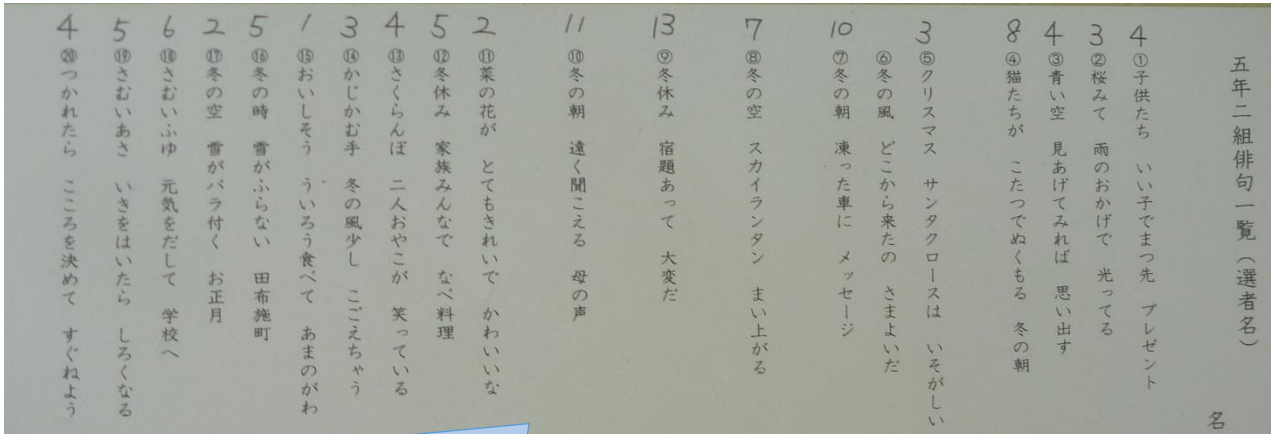 五年二組俳句一覧(選者名)
名
4 ①子供たち いい子でまつ先 プレゼント
3 ②桜みて 雨のおかげで 光ってる
4 ③青い空 見あげてみれば 思い出す
8 ④猫たちが こたつでぬくもる 冬の朝
3 ⑤クリスマス サンタクロースは いそがしい
⑥冬の風 どこから来たの さまよいだ
10 ⑦冬の朝 凍った車に メッセージ
7 ⑧冬の空 スカイランタン まい上がる
13 ⑨冬休み 宿題あって 大変だ
11 ⑩冬の朝 遠く聞こえる 母の声
2 ⑪菜の花が とてもきれいで かわいいな
5 ⑫冬休み 家族みんなで なべ料理
4 ⑬さくらんぼ 二人おやこが 笑っている
3 ⑭かじかむ手 冬の風少し こごえちゃう
1 ⑮おいしそう ういろう食べて あまのがわ
5 ⑯冬の時 雪がふらない 田布施町
2 ⑰冬の空 雪がバラ付く お正月
6 ⑱さむいふゆ 元気をだして 学校へ
5 ⑲さむいあさ いきをはいたら しろくなる
4 ⑳つかれたら こころを決めて すぐねよう